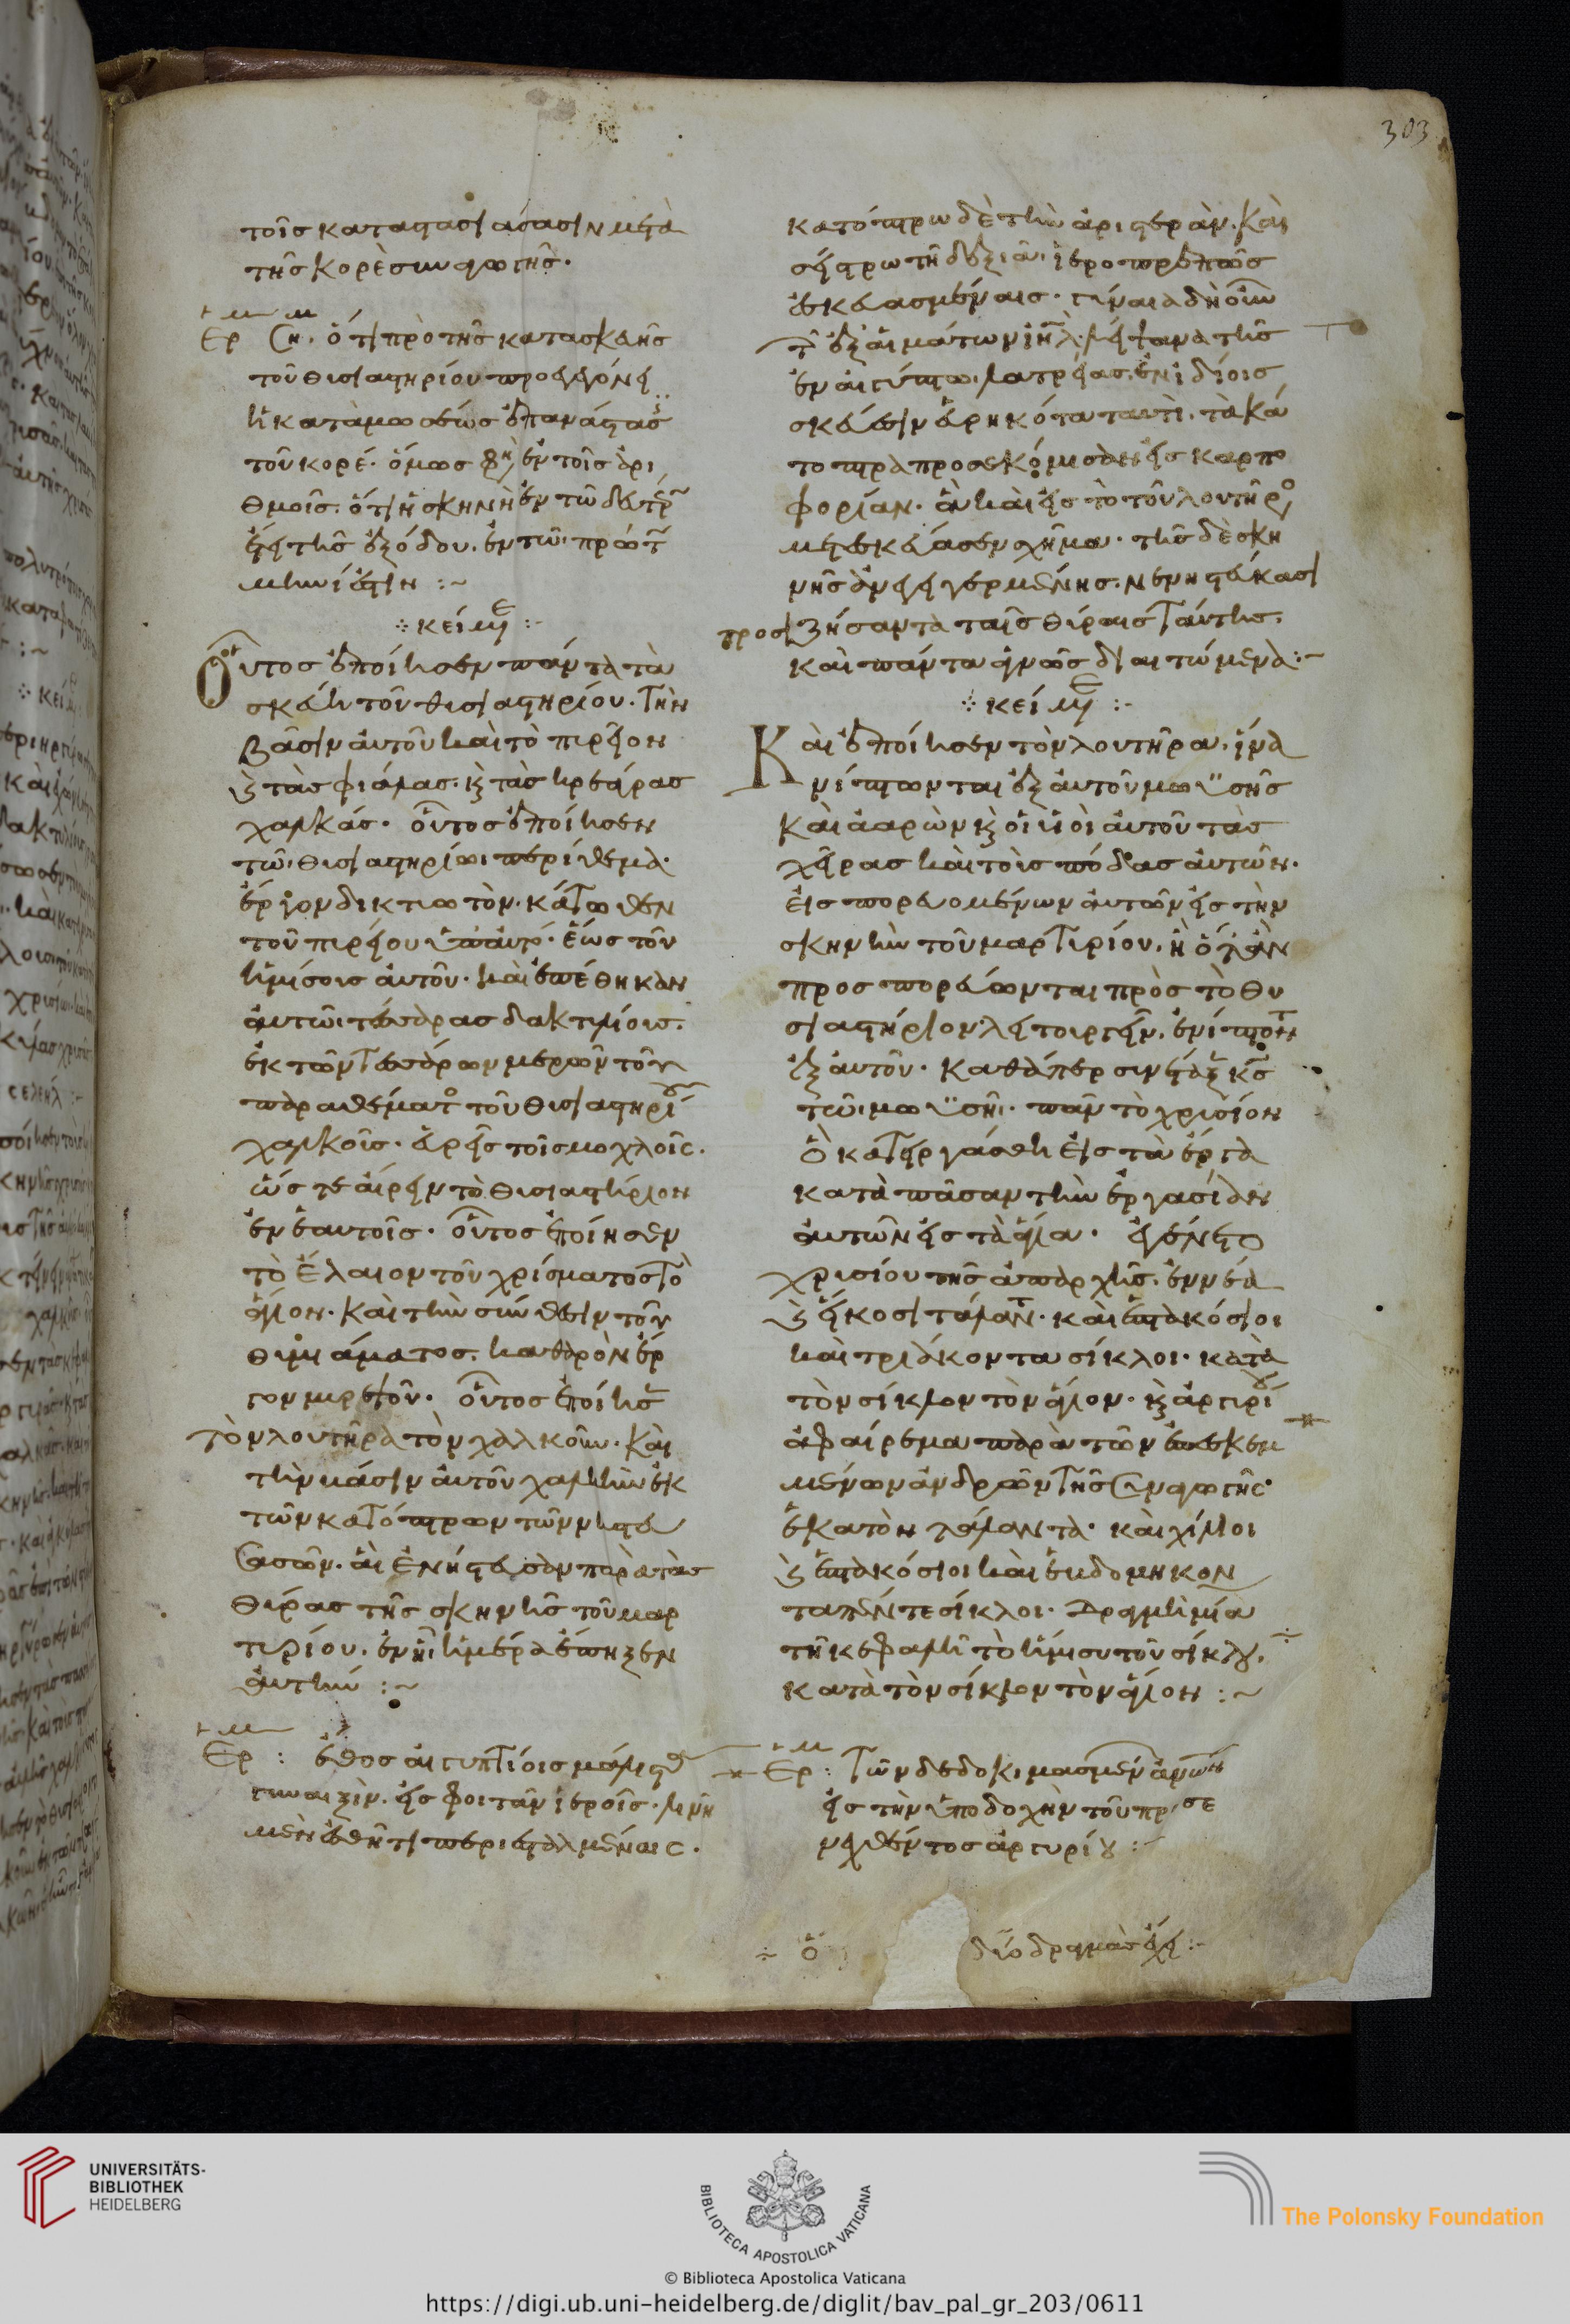 τοῖς καταστασιάσασιν μετὰ
τῆς κορὲ συναγωγῆς.
Ἑρμ Ση. ὅτι πρὸ τῆς κατασκευῆς
τοῦ θυσιαστηρίου προγέγονε
ἡ κατὰ μωσέως ἐπανάστασ
τοῦ κορέ. ὅμως φη ἐν τοῖς ἀρι
θμοῖς. ὅτι ἡ σκηνὴ ἐν τῶ δευτέρ
ἔτει τῆς ἐξόδου. ἐν τῶι πρώτ
μηνὶ ἔστιν :~
κείμ :-
Οὗτος ἐποίησεν πάντα τὰ
σκεύη τοῦ θυσιαστηρίου. τὴν
βάσιν αὐτοῦ καὶ τὸ πυρεῖον
καὶ τὰς φιάλας. καὶ τὰς κρεάγρας
χαλκάς. οὗτος ἐποίησεν
τῶι θυσιαστηρίωι περίθεμα.
ἔργον δικτυωτὸν. κάτωθεν
τοῦ πυρείου ὑπ αὐτ. ἕως τοῦ
ἡμίσους αὐτοῦ. καὶ ἐπέθηκαν
αὐτῶι τέσσαρας δακτυλίους.
ἐκ τῶν τεσσάρων μερῶν τοῦ
παραθέματο τοῦ θυσιαστηρίου
χαλκοῦς. εὐρεῖς τοῖς μοχλοῖς.
ὥστε αἴρειν τὸ θυσιαστήριον
ἐν ἑαυτοῖς. οὗτος ἐποίησεν
τὸ ἔλαιον τοῦ χρίσματος τὸ
ἅγιον. καὶ τὴν σύνθεσιν τοῦ
θυμιάματος. καθαρὸν ἔρ
γον μυρεψοῦ. οὗτος ἐποίησ
τὸν λουτῆρα τὸν χαλκοῦν. καὶ
τὴν βάσιν αὐτοῦ χαλκῆν ἐκ
τῶν κατόπτρων τῶν νηστευ
σασῶν. αἳ ἐνήστευσαν παρὰ τὰς
θύρας τῆς σκηνῆς τοῦ μαρ
τυρίου. ἐν ἧι ἡμέρα ἔπηξεν
αὐτὴν :~
Ἑρμ : ἔθος αἰγυπτίοις μάλιστ
γυναιξὶν. εἰς φοιτᾶν ἱεροῖς. λινῆ
μὲν ἐσθῆτι περιεσταλμέναις.
κατόπτρω δὲ τὴν ἀριστερὰν. καὶ
σείστρω τῆ δεξιᾶ. ἱεροπρεπῶς
ἐσκευασμέναις. γύναια δὴ οὖν
τ ἐξ αἱμάτων ἰηλ. λείψανα τῆς
ἐν αἰγύπτωι λατρείας. ἐν ἰδίοις
σκεύεσιν εὑρηκότα ταυτὶ. τὰ κά
τοπτρα προσεκόμισαν εἰς καρπο
φορίαν. ἃν καὶ εἰς τὸ τοῦ λουτῆρο
μετεσκεύασεν σχῆμα. τῆς δὲ σκη
νῆς ἀνεγηγερμένης. νενηστεύκασι
προσιζήσαντα ταῖς θύραις ταύτης.
καὶ πάντα ἁγνῶς διαιτώμενα :~
κείμ :-
Καὶ ἐποίησεν τὸν λουτῆρα. ἵνα
νίπτωνται ἐξ αὐτοῦ μωϋσῆς
καὶ ἀαρὼν καὶ οἱ υἱοὶ αὐτοῦ τὰς
χεῖρας καὶ τοὺς πόδας αὐτῶν.
εἰσπορευομένων αὐτῶν εἰς τὴν
σκηνὴν τοῦ μαρτυρίου. ἢ ὅταν
προσπορεύωνται πρὸς τὸ θυ
σιαστήριον λειτουργεῖν. ἐνίπτοντ
ἐξ αὐτοῦ. καθάπερ συνέταξ κς
τῶι μωϋσῆι. πᾶν τὸ χρυσίον
ὃ κατειργάσθη εἰς τὰ ἔργα
κατὰ πᾶσαν τὴν ἐργασίαν
αὐτῶν εἰς τὰ ἅγια. ἐγένετο
χρυσίου τῆς ἀπαρχῆς. ἐννέα
καὶ εἴκοσι τάλαντ. καὶ ἑπτακόσιοι
καὶ τριάκοντα σίκλοι. κατὰ
τὸν σίκλον τὸν ἅγιον. καὶ ἀργυρίου
ἀφαίρεμα παρὰ τῶν ἐπεσκεμ
μένων ἀνδρῶν τῆς συναγωγῆς.
ἑκατὸν τάλαντα. καὶ χίλιοι
καὶ ἑπτακόσιοι καὶ ἑβδομηκον
ταπέντε σίκλοι. Δραχμὴ μία
τῆ κεφαλῆ τὸ ἥμισυ τοῦ σίκλου.
κατὰ τὸν σίκλον τὸν ἅγιον :~
Ἑρμ : Τῶν δεδοκιμασμέν
εἰς τὴν ὑποδοχὴν τοῦ προσε
νεχθέντος ἀργυρίου :-
δύο δραχμὰς ἔχει :-
303
UNIVERSITÄTS-
BIBLIOTHEK
HEIDELBERG
BIBLIOTECA APOSTOLICA VATICANA
The Polonsky Foundation
© Biblioteca Apostolica Vaticana
https://digi.ub.uni-heidelberg.de/diglit/bav_pal_gr_203/0611